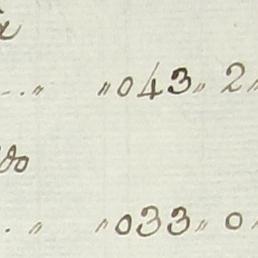 ..„ „043„ 2„
do
.„ „033„ 0„